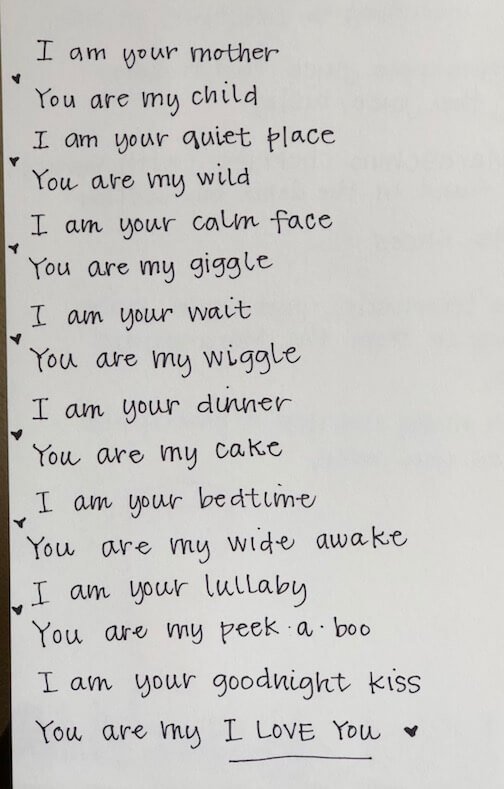 I am your mother
You are my child
I am your quiet place
You are my wild
I am your calm face
You are my giggle
I am your wait
You are my wiggle
I am your dinner
You are my cake
I am your bedtime
You are my wide awake
I am your lullaby
You are my peek·a·boo
I am your goodnight kiss
You are my I LOVE YOU